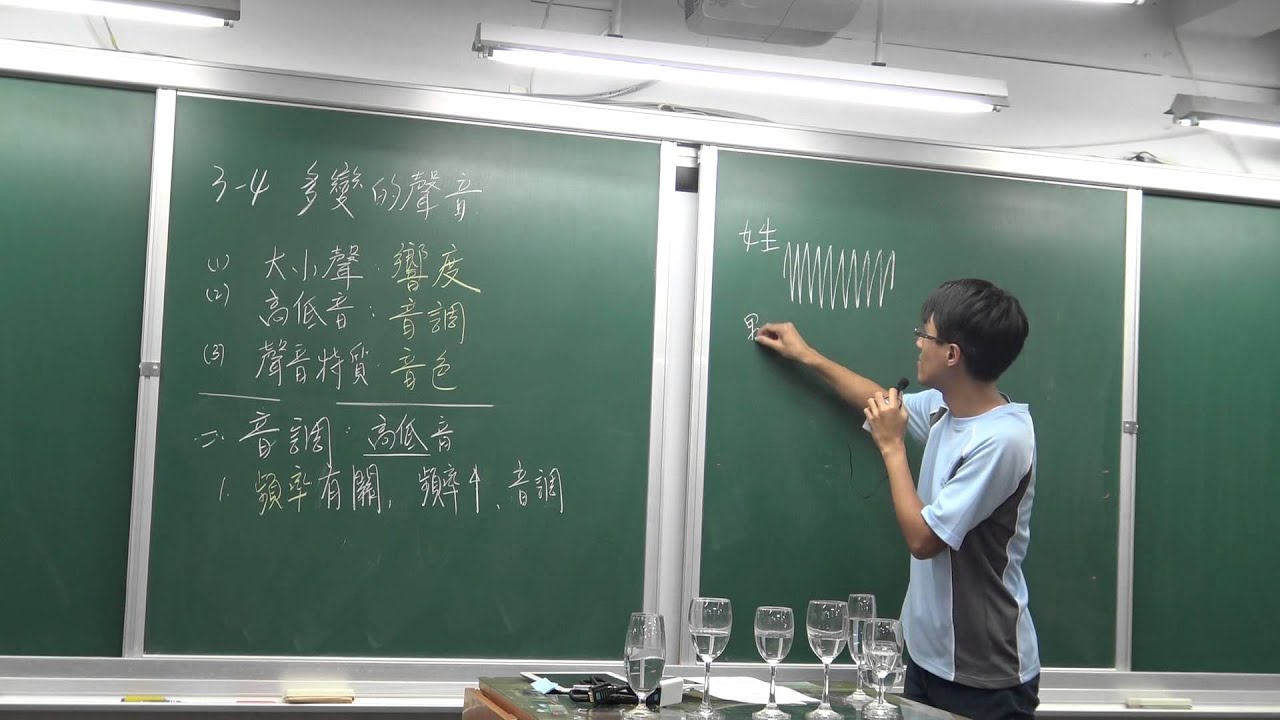 3-4 多變的聲音
(1) 大小聲:響度
(2) 高低音:音調
(3) 聲音特質:音色
二.音調:高低音
1. 頻率有關,頻率↑、音調
女生